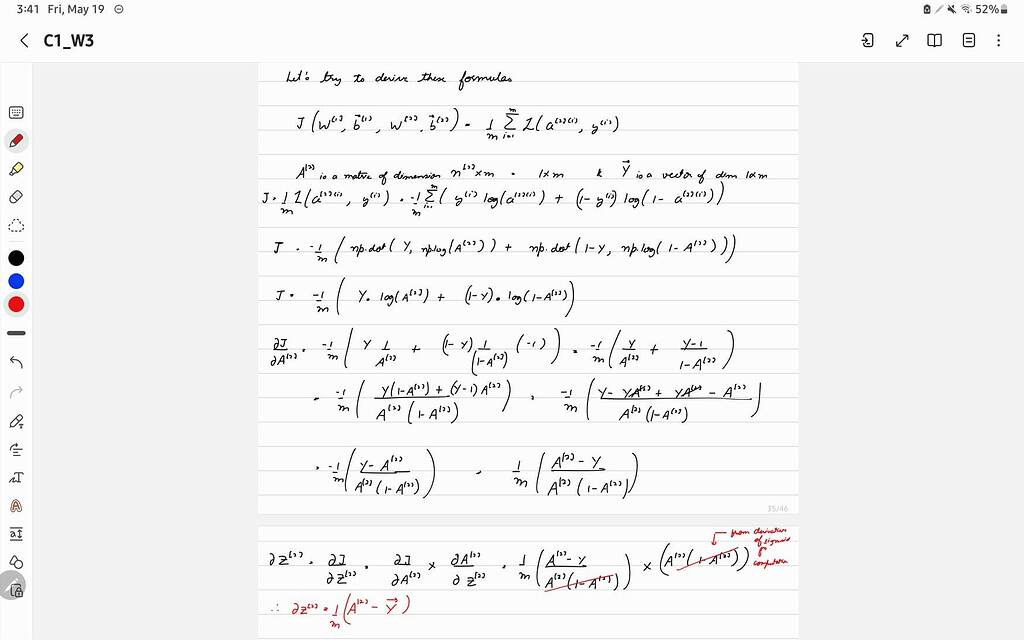 3:41 Fri, May 19 52%
C1_W3
Let's try to derive these formulas
J(W^[1], b⃗^[1], W^[2], b⃗^[2]) = 1/m Σ_{i=1}^{m} L(a^[2](i), y^(i))
A^[2] is a matrix of dimension n^[2] x m = 1 x m & Y⃗ is a vector of dim 1xm
J = 1/m L(a^[2](i), y^(i)) = -1/m Σ_{i=1}^{m} ( y^(i) log(a^[2](i)) + (1 - y^(i)) log(1 - a^[2](i)))
J = -1/m ( np.dot( Y, np.log(A^[2])) + np.dot( 1-Y, np.log( 1 - A^[2])))
J = -1/m ( Y • log(A^[2]) + (1-Y) • log(1-A^[2]))
∂J/∂A^[2] = -1/m ( Y 1/A^[2] + (1-Y) 1/(1-A^[2]) (-1) ) = -1/m ( Y/A^[2] + Y-1/1-A^[2] )
= -1/m ( Y(1-A^[2]) + (Y-1) A^[2] / A^[2] (1-A^[2]) ) = -1/m ( Y - YA^[2] + YA^[2] - A^[2] / A^[2] (1-A^[2]) )
= -1/m ( Y - A^[2] / A^[2] (1-A^[2]) ) = 1/m ( A^[2] - Y / A^[2] (1-A^[2]) )
35/46
from derivative
of sigmoid
fn
computation
∂Z^[2] = ∂J/∂Z^[2] = ∂J/∂A^[2] x ∂A^[2]/∂Z^[2] = 1/m ( A^[2] - Y / A^[2] (1-A^[2]) ) x (A^[2] (1-A^[2]))
∴ ∂Z^[2] = 1/m (A^[2] - Y⃗)